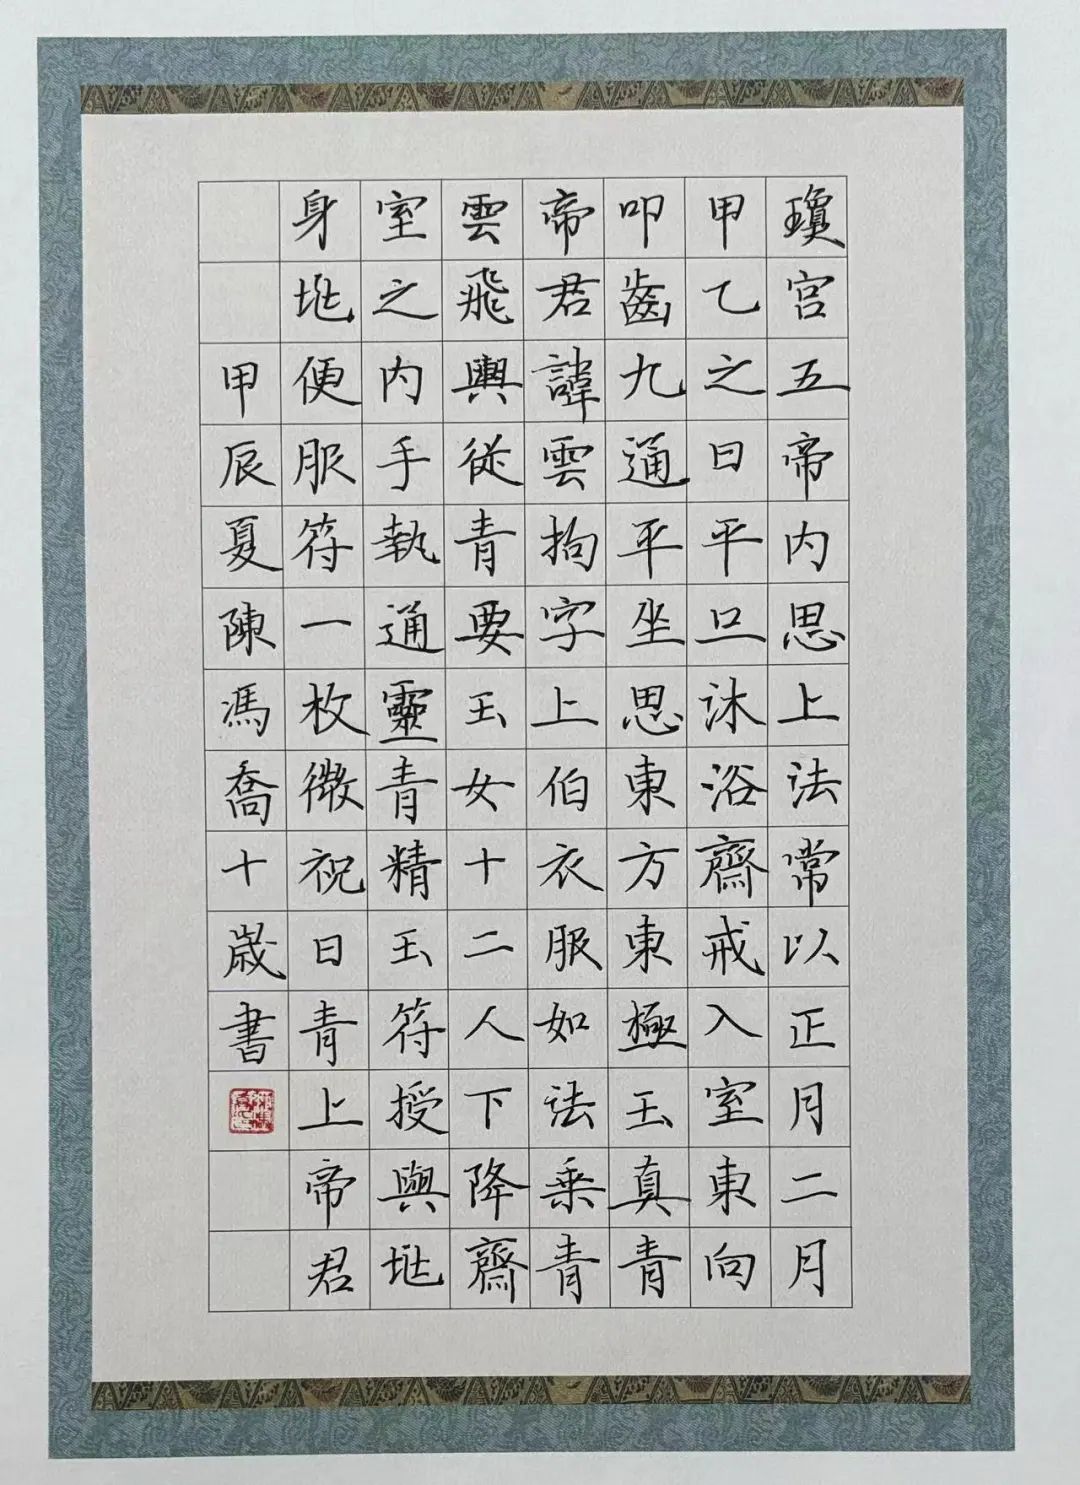 瓊宮五帝内思上法常以正月二月
甲乙之日平旦沐浴齋戒入室東向
叩齒九通平坐思東方東極玉真青
帝君諱雲拘字上伯衣服如法乗青
雲飛輿從青要玉女十二人下降齋
室之内手執通靈青精玉符授與兆
身兆便服符一枚微祝曰青上帝君
甲辰夏陳馮喬十歲書